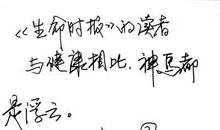 《生命时报》的读者
与健康相比，神马都
是浮云。